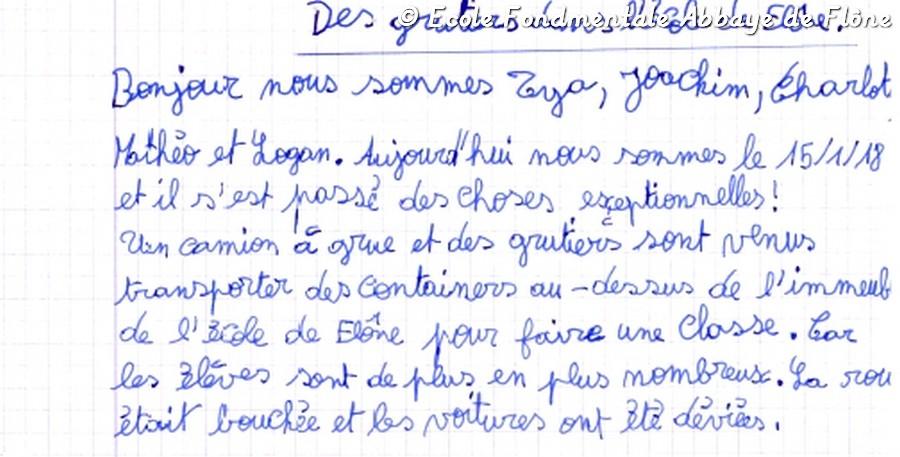 © Ecole Fondmentale Abbaye de Flône
Des grutiers dans l'école de Flône.
Bonjour nous sommes Tya, Joachim, Charlot
Mathéo et Logan. Aujourd'hui nous sommes le 15/1/18
et il s'est passé des choses exceptionnelles!
Un camion à grue et des grutiers sont venus
transporter des containers au-dessus de l'immeub
de l'école de Flône pour faire une classe. Car
les élèves sont de plus en plus nombreux. La rou
était bouchée et les voitures ont été déviées.